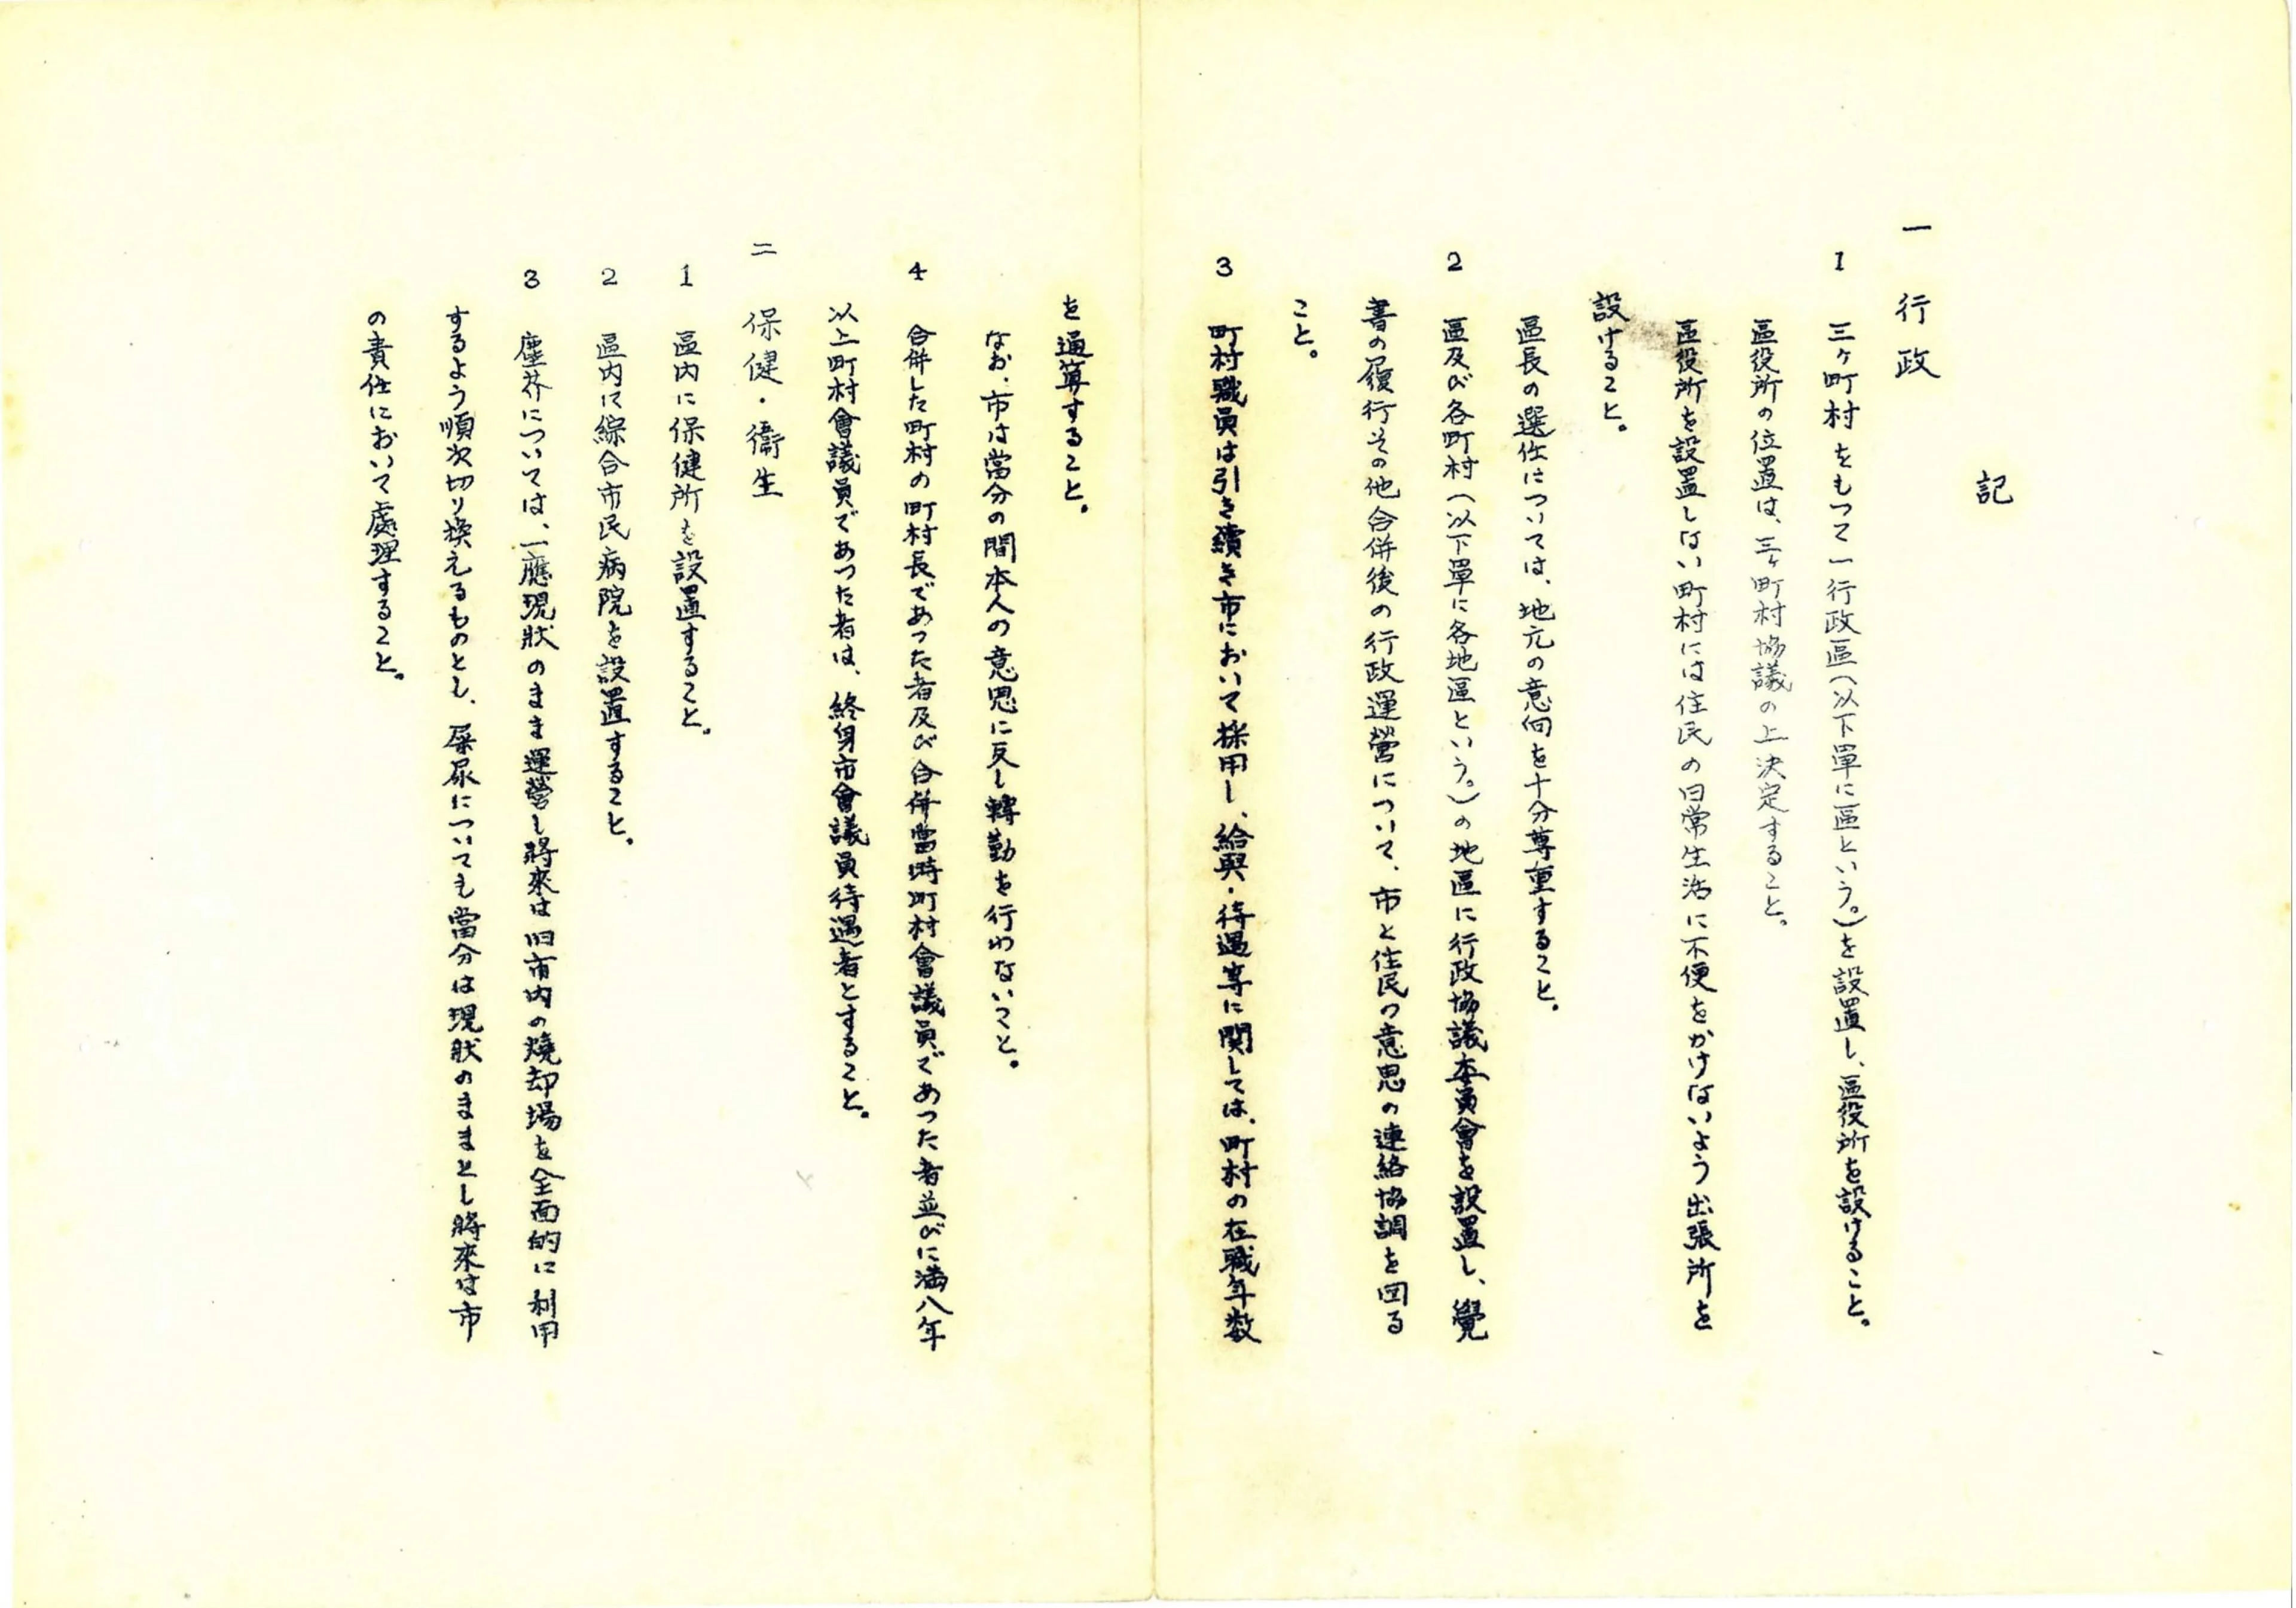 記
一　行政
1　三ヶ町村をもつて一行政區（以下單に區という。）を設置し、區役所を設けること。
區役所の位置は、三ヶ町村協議の上決定すること。
區役所を設置しない町村には住民の日常生活に不便をかけないよう出張所を
設けること。
區長の選任については、地元の意向を十分尊重すること。
2　區及び各町村（以下單に各地區という。）の地區に行政協議委員會を設置し、覺
書の履行その他合併後の行政運營について、市と住民の意思の連絡協調を図る
こと。
3　町村職員は引き續き市において採用し、給與・待遇等に関しては、町村の在職年数
を通算すること。
なお、市は當分の間本人の意思に反し轉勤を行わないこと。
4　合併した町村の町村長であつた者及び合併當時町村會議員であつた者並びに満八年
以上町村會議員であつた者は、終身市會議員待遇者とすること。
二　保健・衞生
1　區内に保健所を設置すること。
2　區内に綜合市民病院を設置すること。
3　塵芥については、一應現狀のまま運營し將來は旧市内の燒却場を全面的に利用
するよう順次切り換えるものとし、屎尿についても當分は現狀のままとし將來は市
の責任において處理すること。